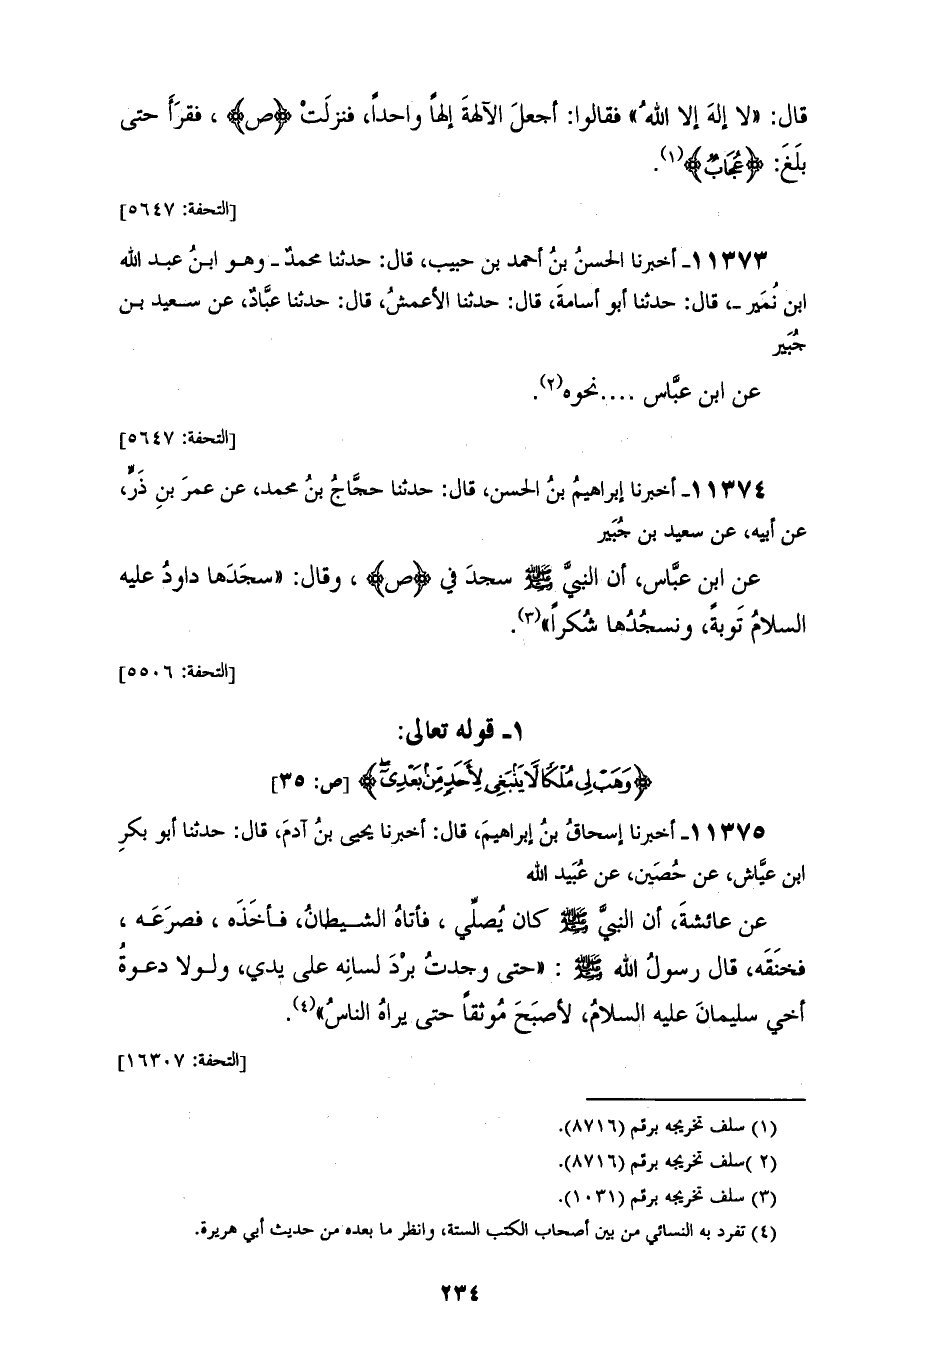 قال: «لا إلهَ إلا اللهُ» فقالوا: أجعلَ الآلهةَ إلهاً واحداً، فنزلَتْ ﴿ص﴾ ، فقرَأَ حتى
بلَغَ: ﴿عُجَابٌ﴾(١).
[التحفة: ٥٦٤٧]
١١٣٧٣ـ أخبرنا الحسنُ بنُ أحمد بن حبيب، قال: حدثنا محمدٌ ـ وهو ابنُ عبد الله
ابن نُمَير ـ، قال: حدثنا أبو أسامةَ، قال: حدثنا الأعمشُ، قال: حدثنا عبَّادٌ، عن سعيد بن
جُبَير
عن ابن عبَّاس ....نحوه(٢).
[التحفة: ٥٦٤٧]
١١٣٧٤ـ أخبرنا إبراهيمُ بنُ الحسن، قال: حدثنا حجَّاجُ بنُ محمد، عن عمرَ بنِ ذَرٍّ،
عن أبيه، عن سعيد بن جُبَير
عن ابن عبَّاس، أن النبيَّ ﷺ سجدَ في ﴿ص﴾ ، وقال: «سجَدَها داودُ عليه
السلامُ تَوبةً، ونسجُدُها شُكراً»(٣).
[التحفة: ٥٥٠٦]
١ـ قوله تعالى:
﴿وَهَبْ لِي مُلْكًا لَّا يَنۢبَغِي لِأَحَدٍ مِّنۢ بَعْدِيٓ﴾ [ص: ٣٥]
١١٣٧٥ـ أخبرنا إسحاقُ بنُ إبراهيمَ، قال: أخبرنا يحيى بنُ آدمَ، قال: حدثنا أبو بكرِ
ابن عيَّاش، عن حُصَين، عن عُبَيد الله
عن عائشةَ، أن النبيَّ ﷺ كان يُصلِّي ، فأتاهُ الشيطانُ، فأخَذَه ، فصرَعَه ،
فخنَقَه، قال رسولُ الله ﷺ : «حتى وجدتُ برْدَ لسانِه على يدي، ولولا دعوةُ
أخي سليمانَ عليه السلامُ، لأصبَحَ مُوثقاً حتى يراهُ الناسُ»(٤).
[التحفة: ١٦٣٠٧]
(١) سلف تخريجه برقم (٨٧١٦).
(٢ )سلف تخريجه برقم (٨٧١٦).
(٣) سلف تخريجه برقم (١٠٣١).
(٤) تفرد به النسائي من بين أصحاب الكتب الستة، وانظر ما بعده من حديث أبي هريرة.
٢٣٤